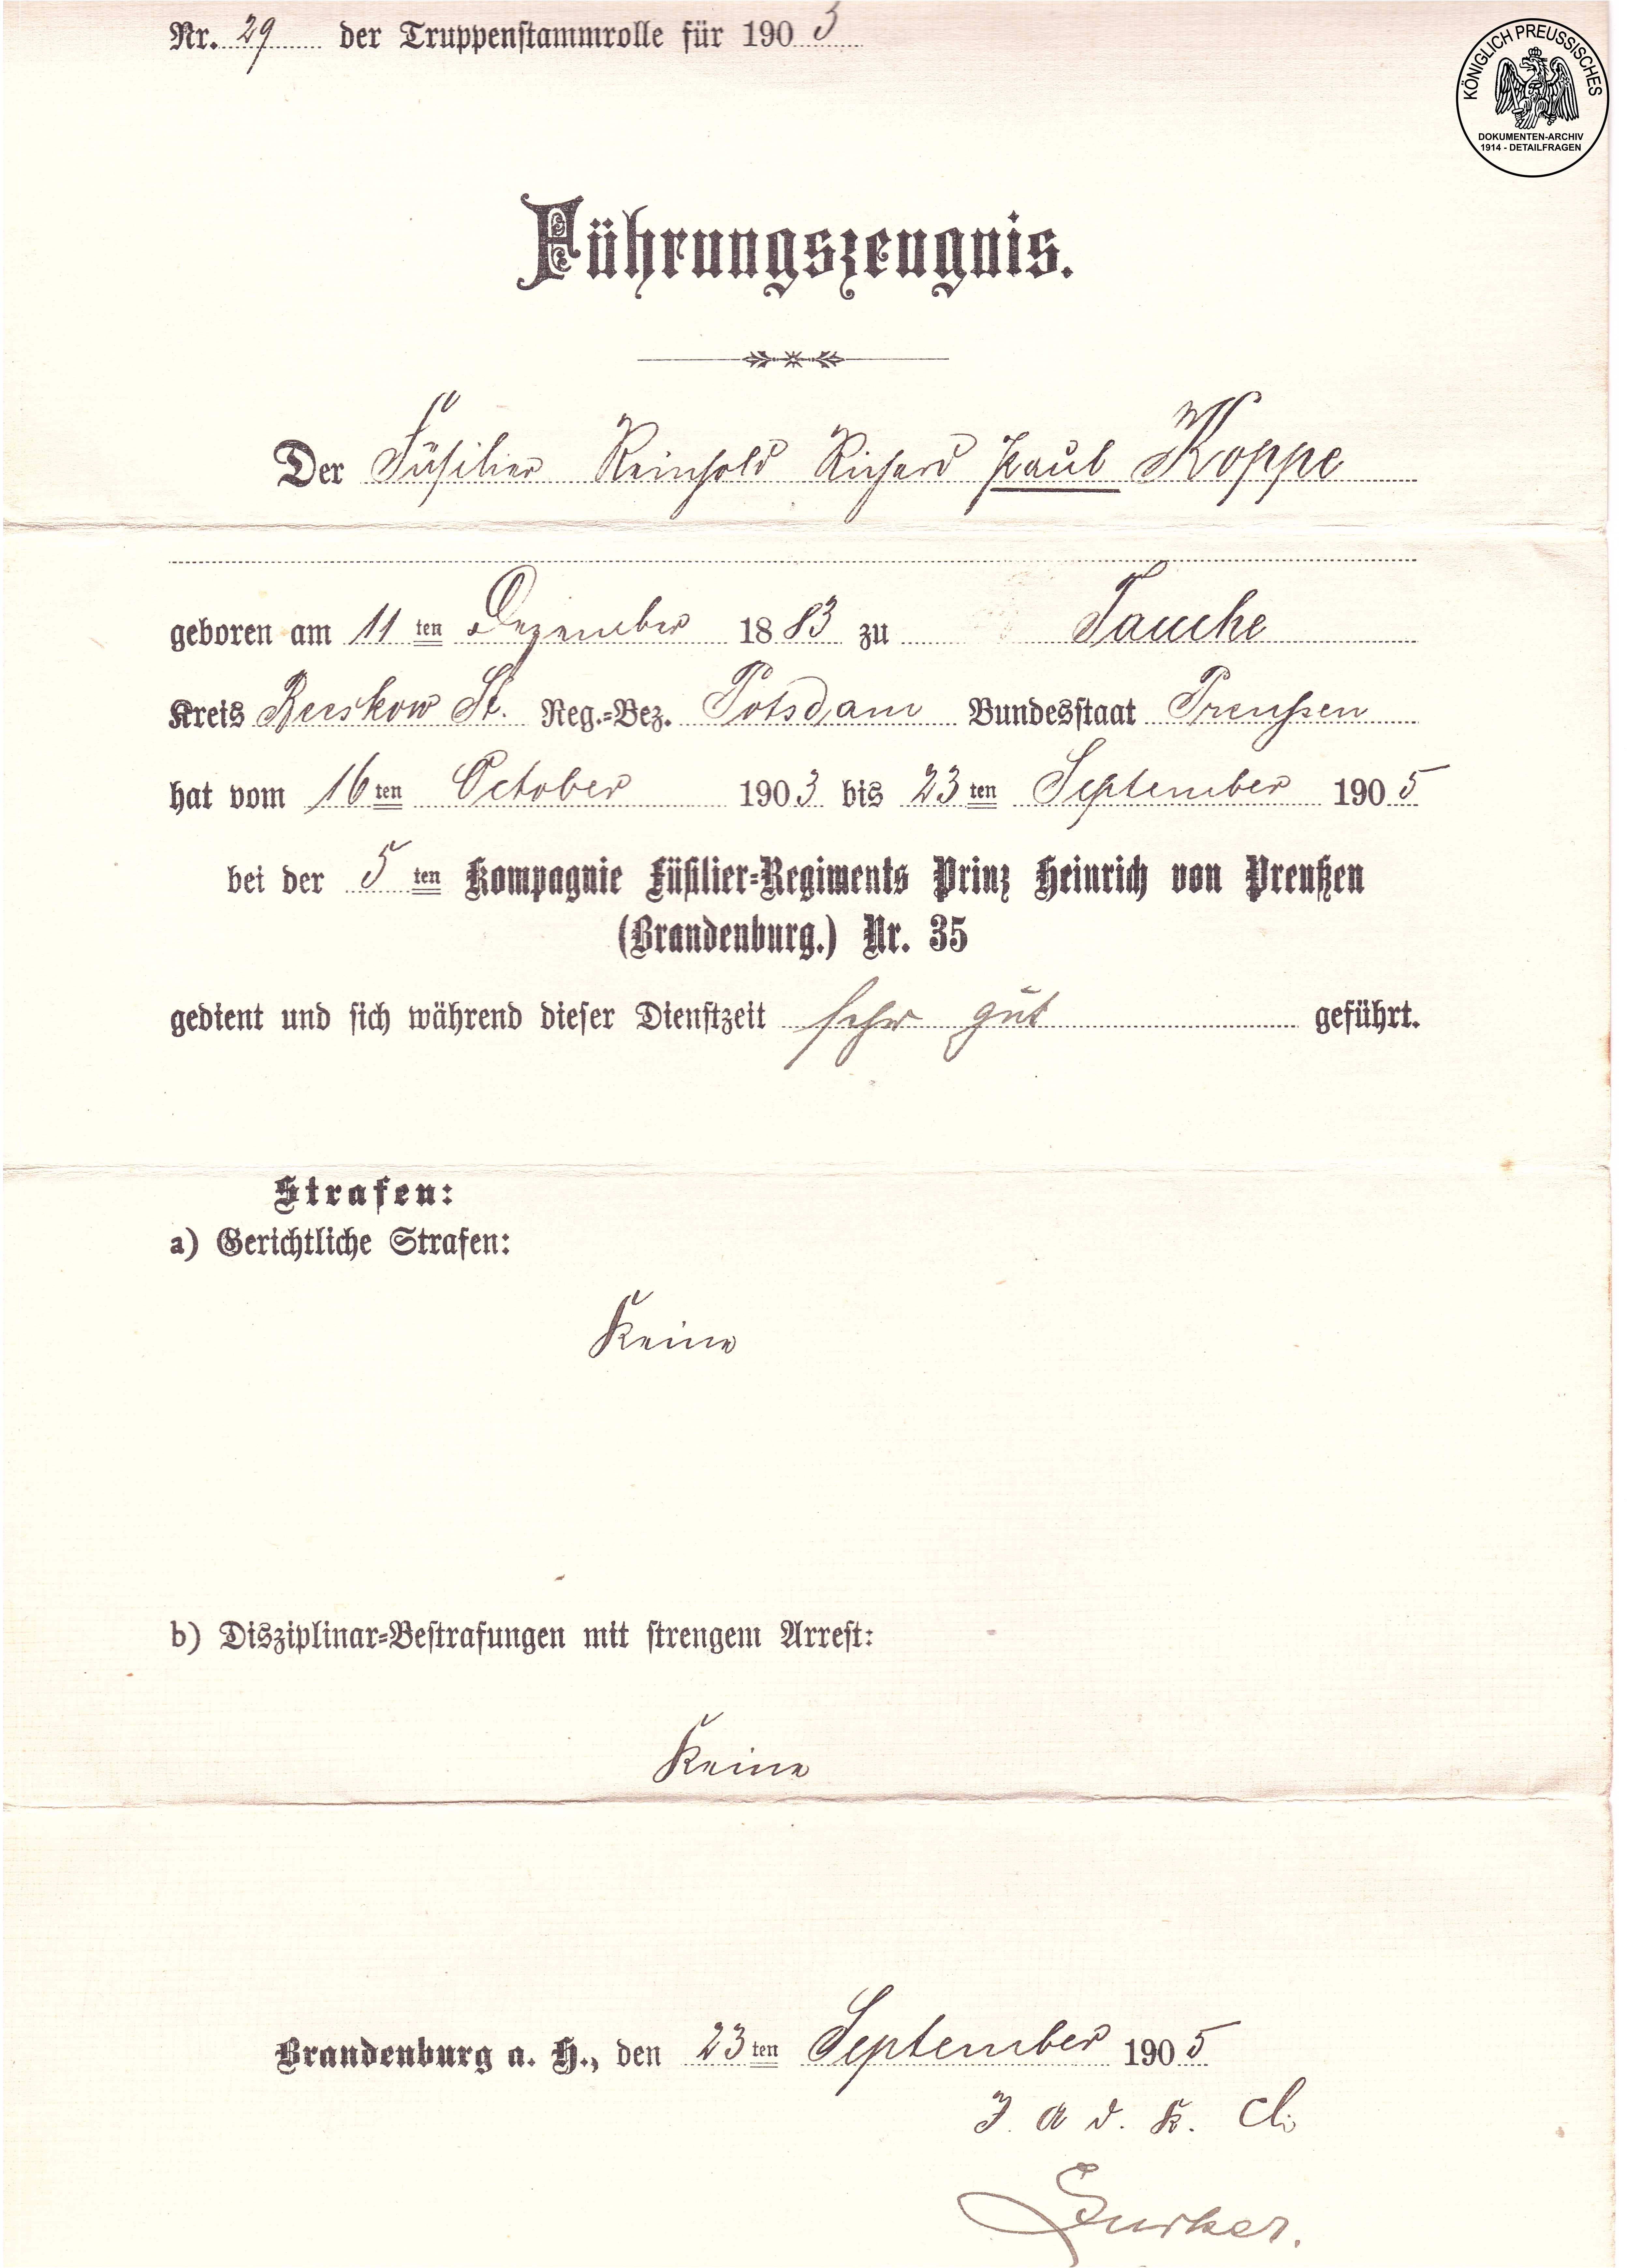 Nr. 29 der Truppenstammrolle für 1903
KÖNIGLICH PREUSSISCHES
DOKUMENTEN-ARCHIV
1914 - DETAILFRAGEN
Führungszeugnis.
Der Füsilier Reinhold Richard Paul Koppe
geboren am 11ten Dezember 1883 zu Tauche
Kreis Beeskow St. Reg.-Bez. Potsdam Bundesstaat Preußen
hat vom 16ten October 1903 bis 23ten September 1905
bei der 5ten Kompagnie Füsilier-Regiments Prinz Heinrich von Preußen
(Brandenburg.) Nr. 35
gedient und sich während dieser Dienstzeit sehr gut geführt.
Strafen:
a) Gerichtliche Strafen:
Keine
b) Disziplinar-Bestrafungen mit strengem Arrest:
Keine
Brandenburg a. H., den 23ten September 1905
J. a. d. K.